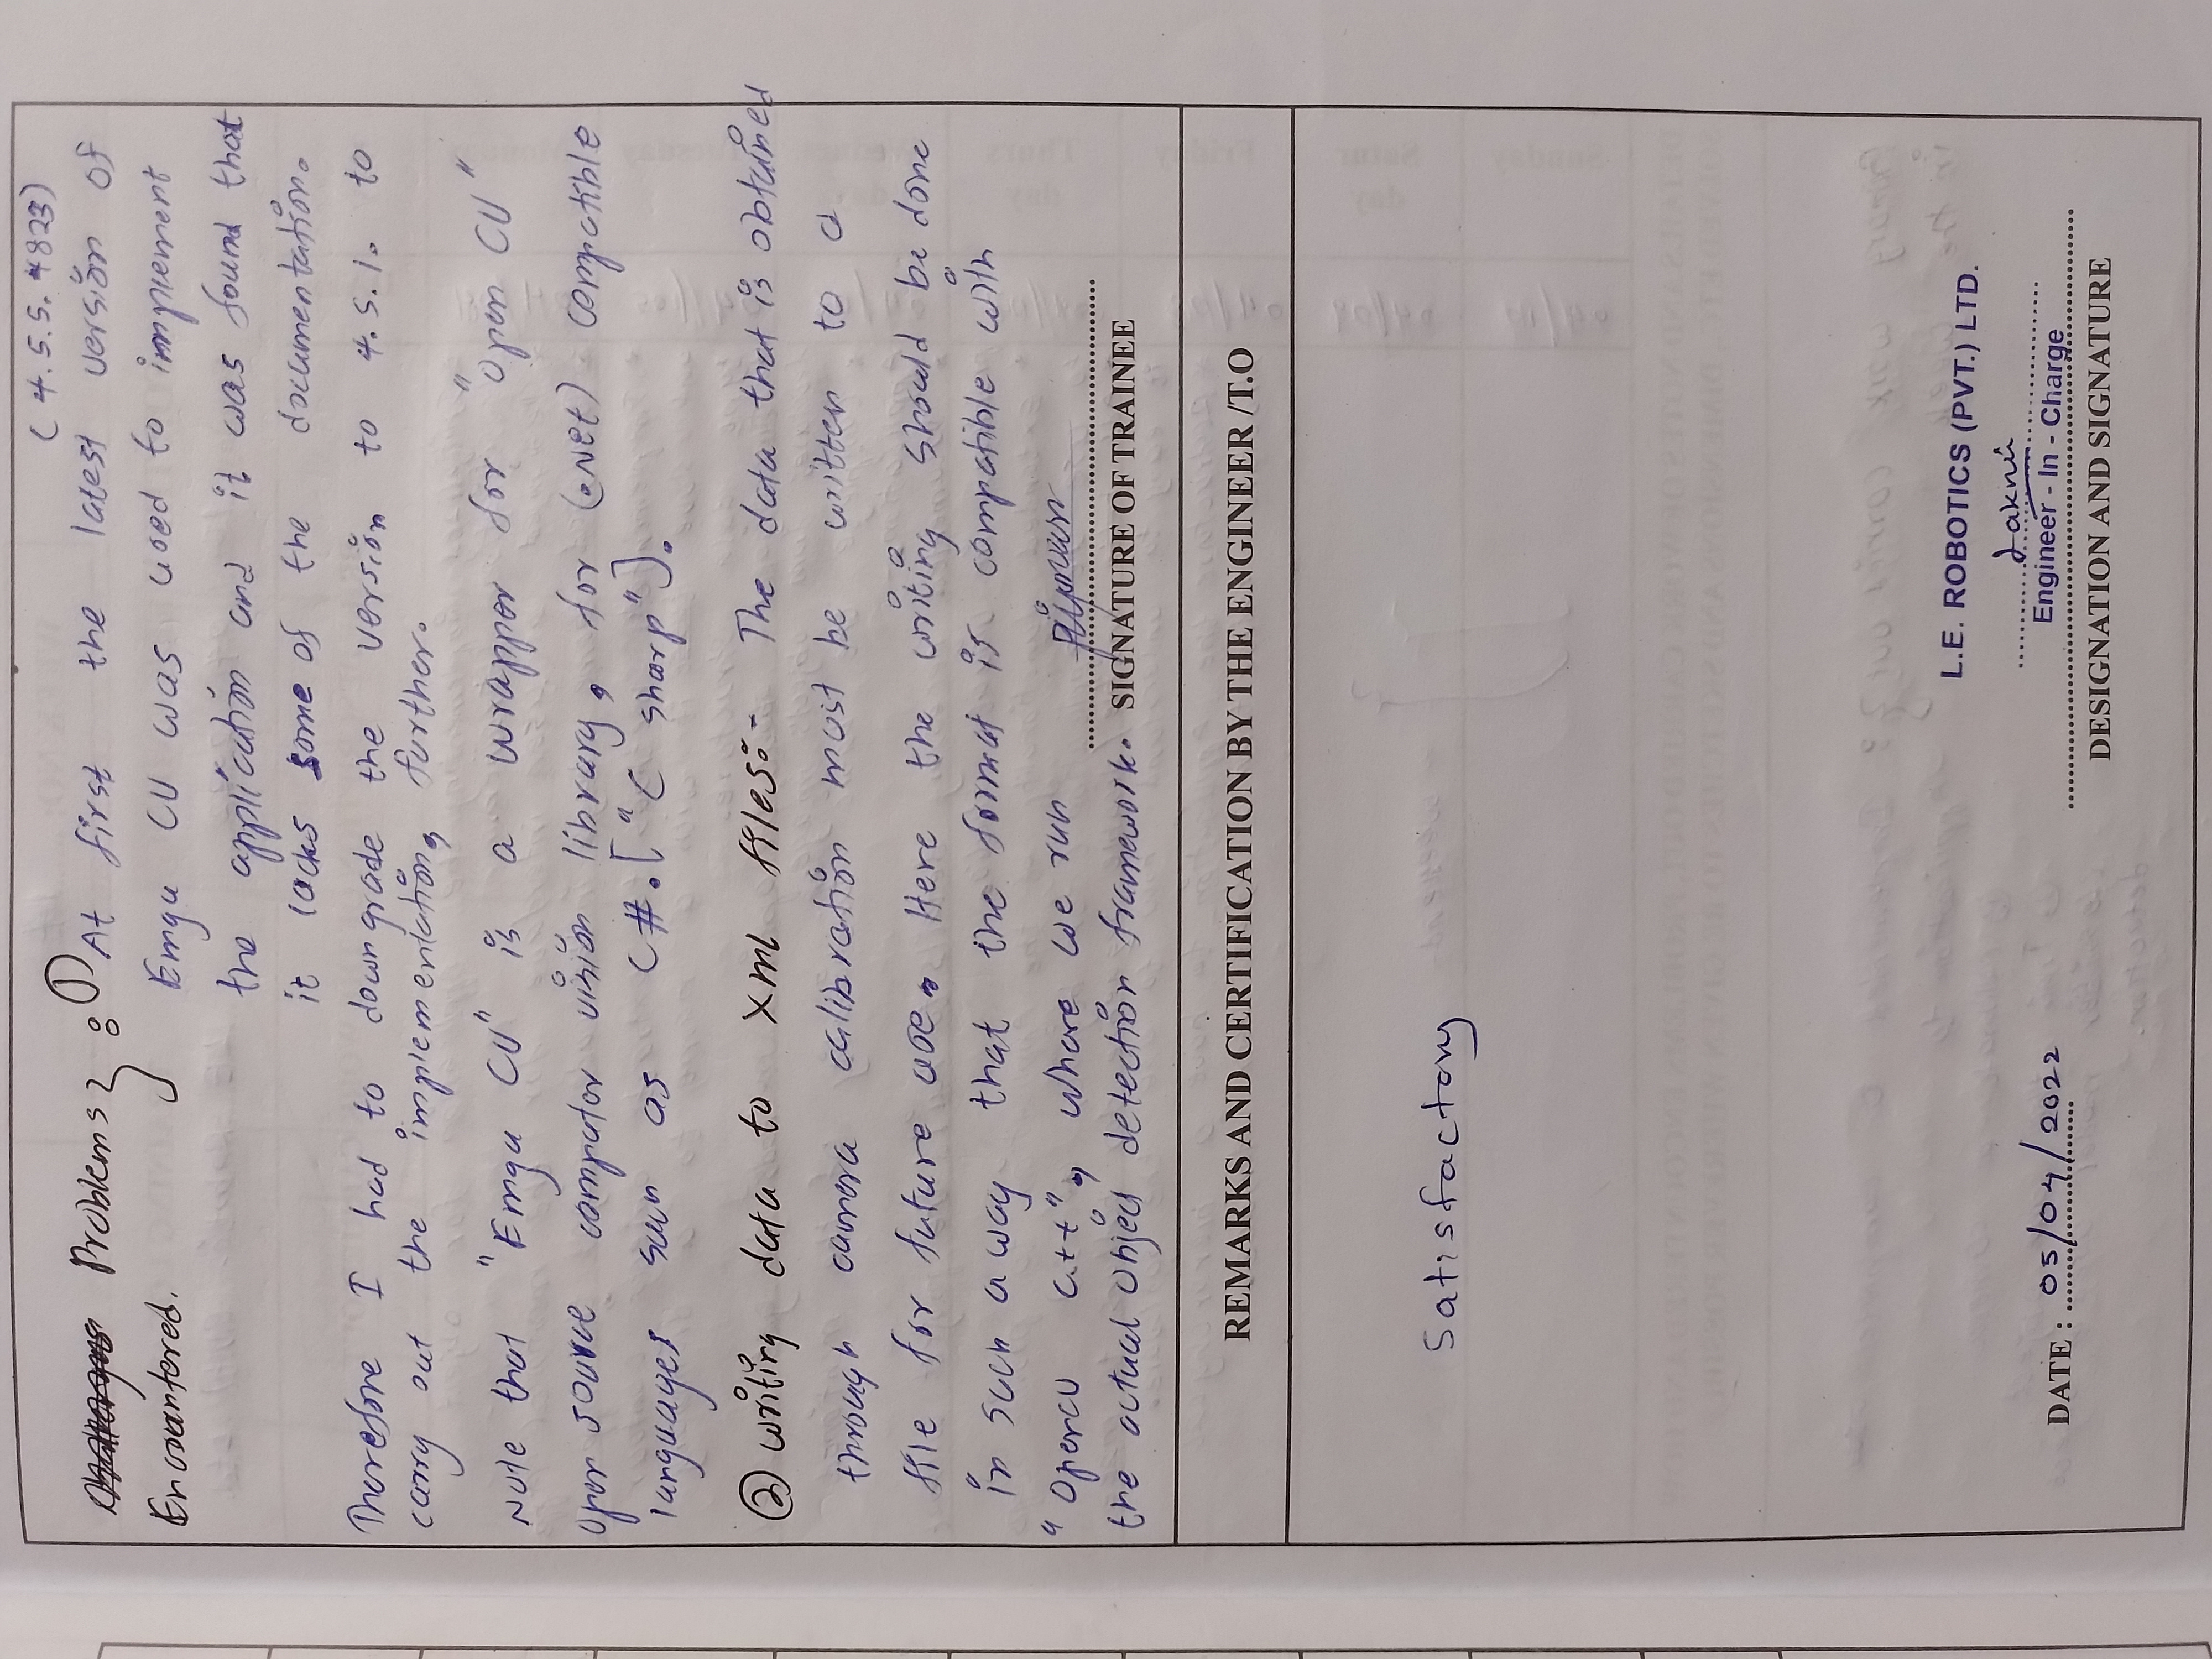 (4.5.5.4823)
Problems } : ① At first the latest version of
Encountered. Emgu CV was used to implement
the application and it was found that
it lacks some of the documentation.
Therefore I had to downgrade the version to 4.5.1. to
carry out the implementation, further.
Note that "Emgu CV" is a wrapper for "Open CV"
open source computer vision library, for (.Net) compatible
languages such as C#.["C sharp"].
② writing data to xml files:- The data that is obtained
through camera calibration must be written to a
file for future use. Here the writing should be done
in such a way that the format is compatible with
"Opencv C++", where we run
the actual object detection framework. SIGNATURE OF TRAINEE
REMARKS AND CERTIFICATION BY THE ENGINEER /T.O
Satisfactory
L.E. ROBOTICS (PVT.) LTD.
DATE : 05/04/2022
Engineer - In - Charge
DESIGNATION AND SIGNATURE